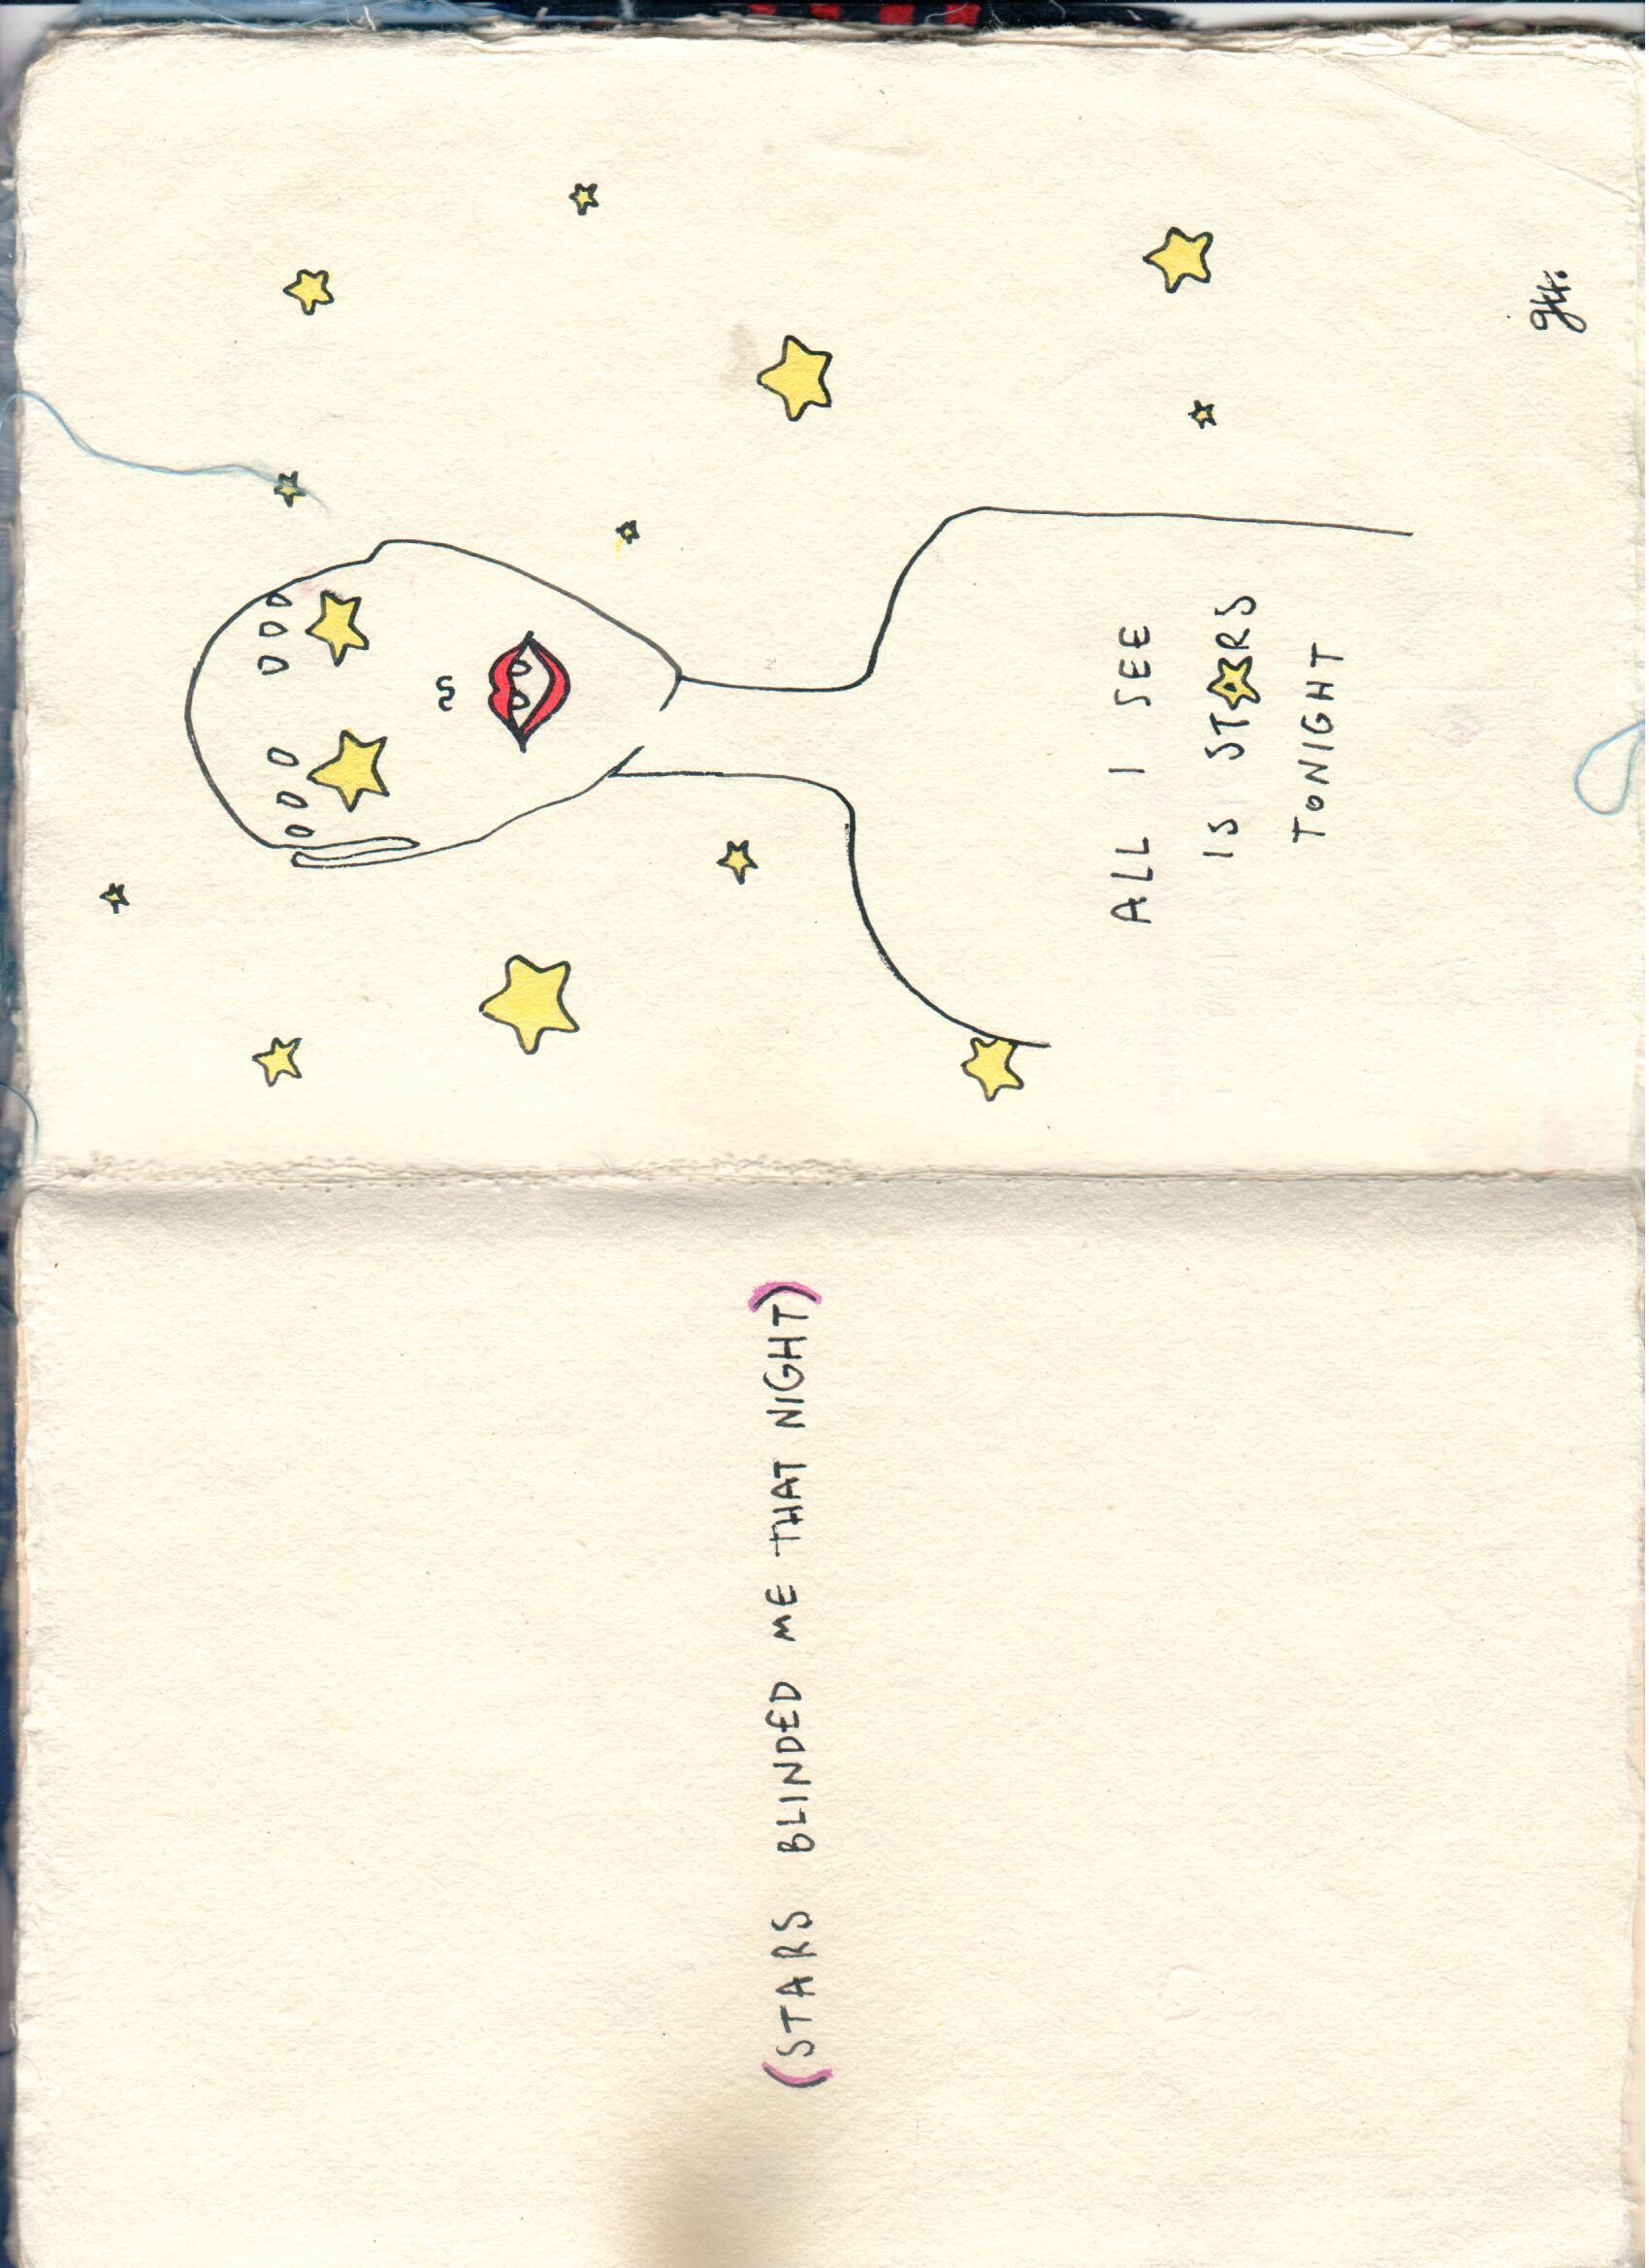 (STARS BLINDED ME THAT NIGHT)
ALL I SEE
IS STARS
TONIGHT